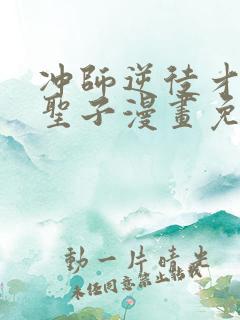 冲師逆徒才
聖子漫畫免
動一片晴光
未任同意禁止轉載